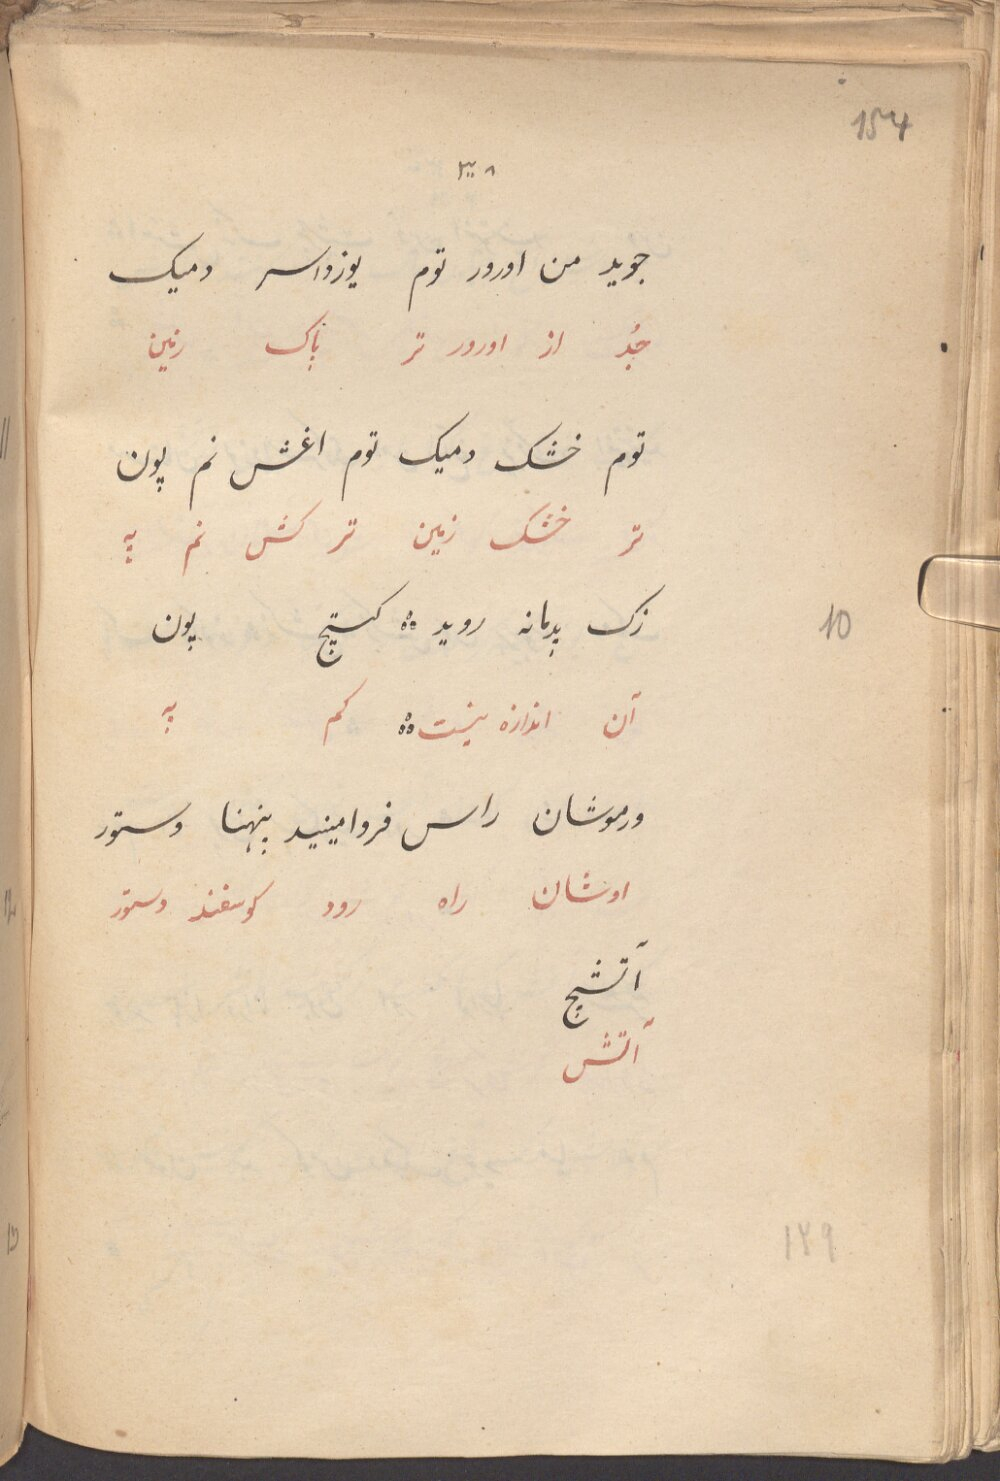 154
جوید من اورور توم یوزداسر دمیک
جُد از اورور تر پاک زمین
توم خشک دمیک توم اغش نم پون
تر خشک زمین تر کش نم په
10
زک پدمانه روید ஃ کستیج پون
آن اندازه نیست ஃ کم به
ورموشان راس فروامینید پنهنا وستور
اوشان راه رود کوسفند وستور
آتشیج
آتش
129